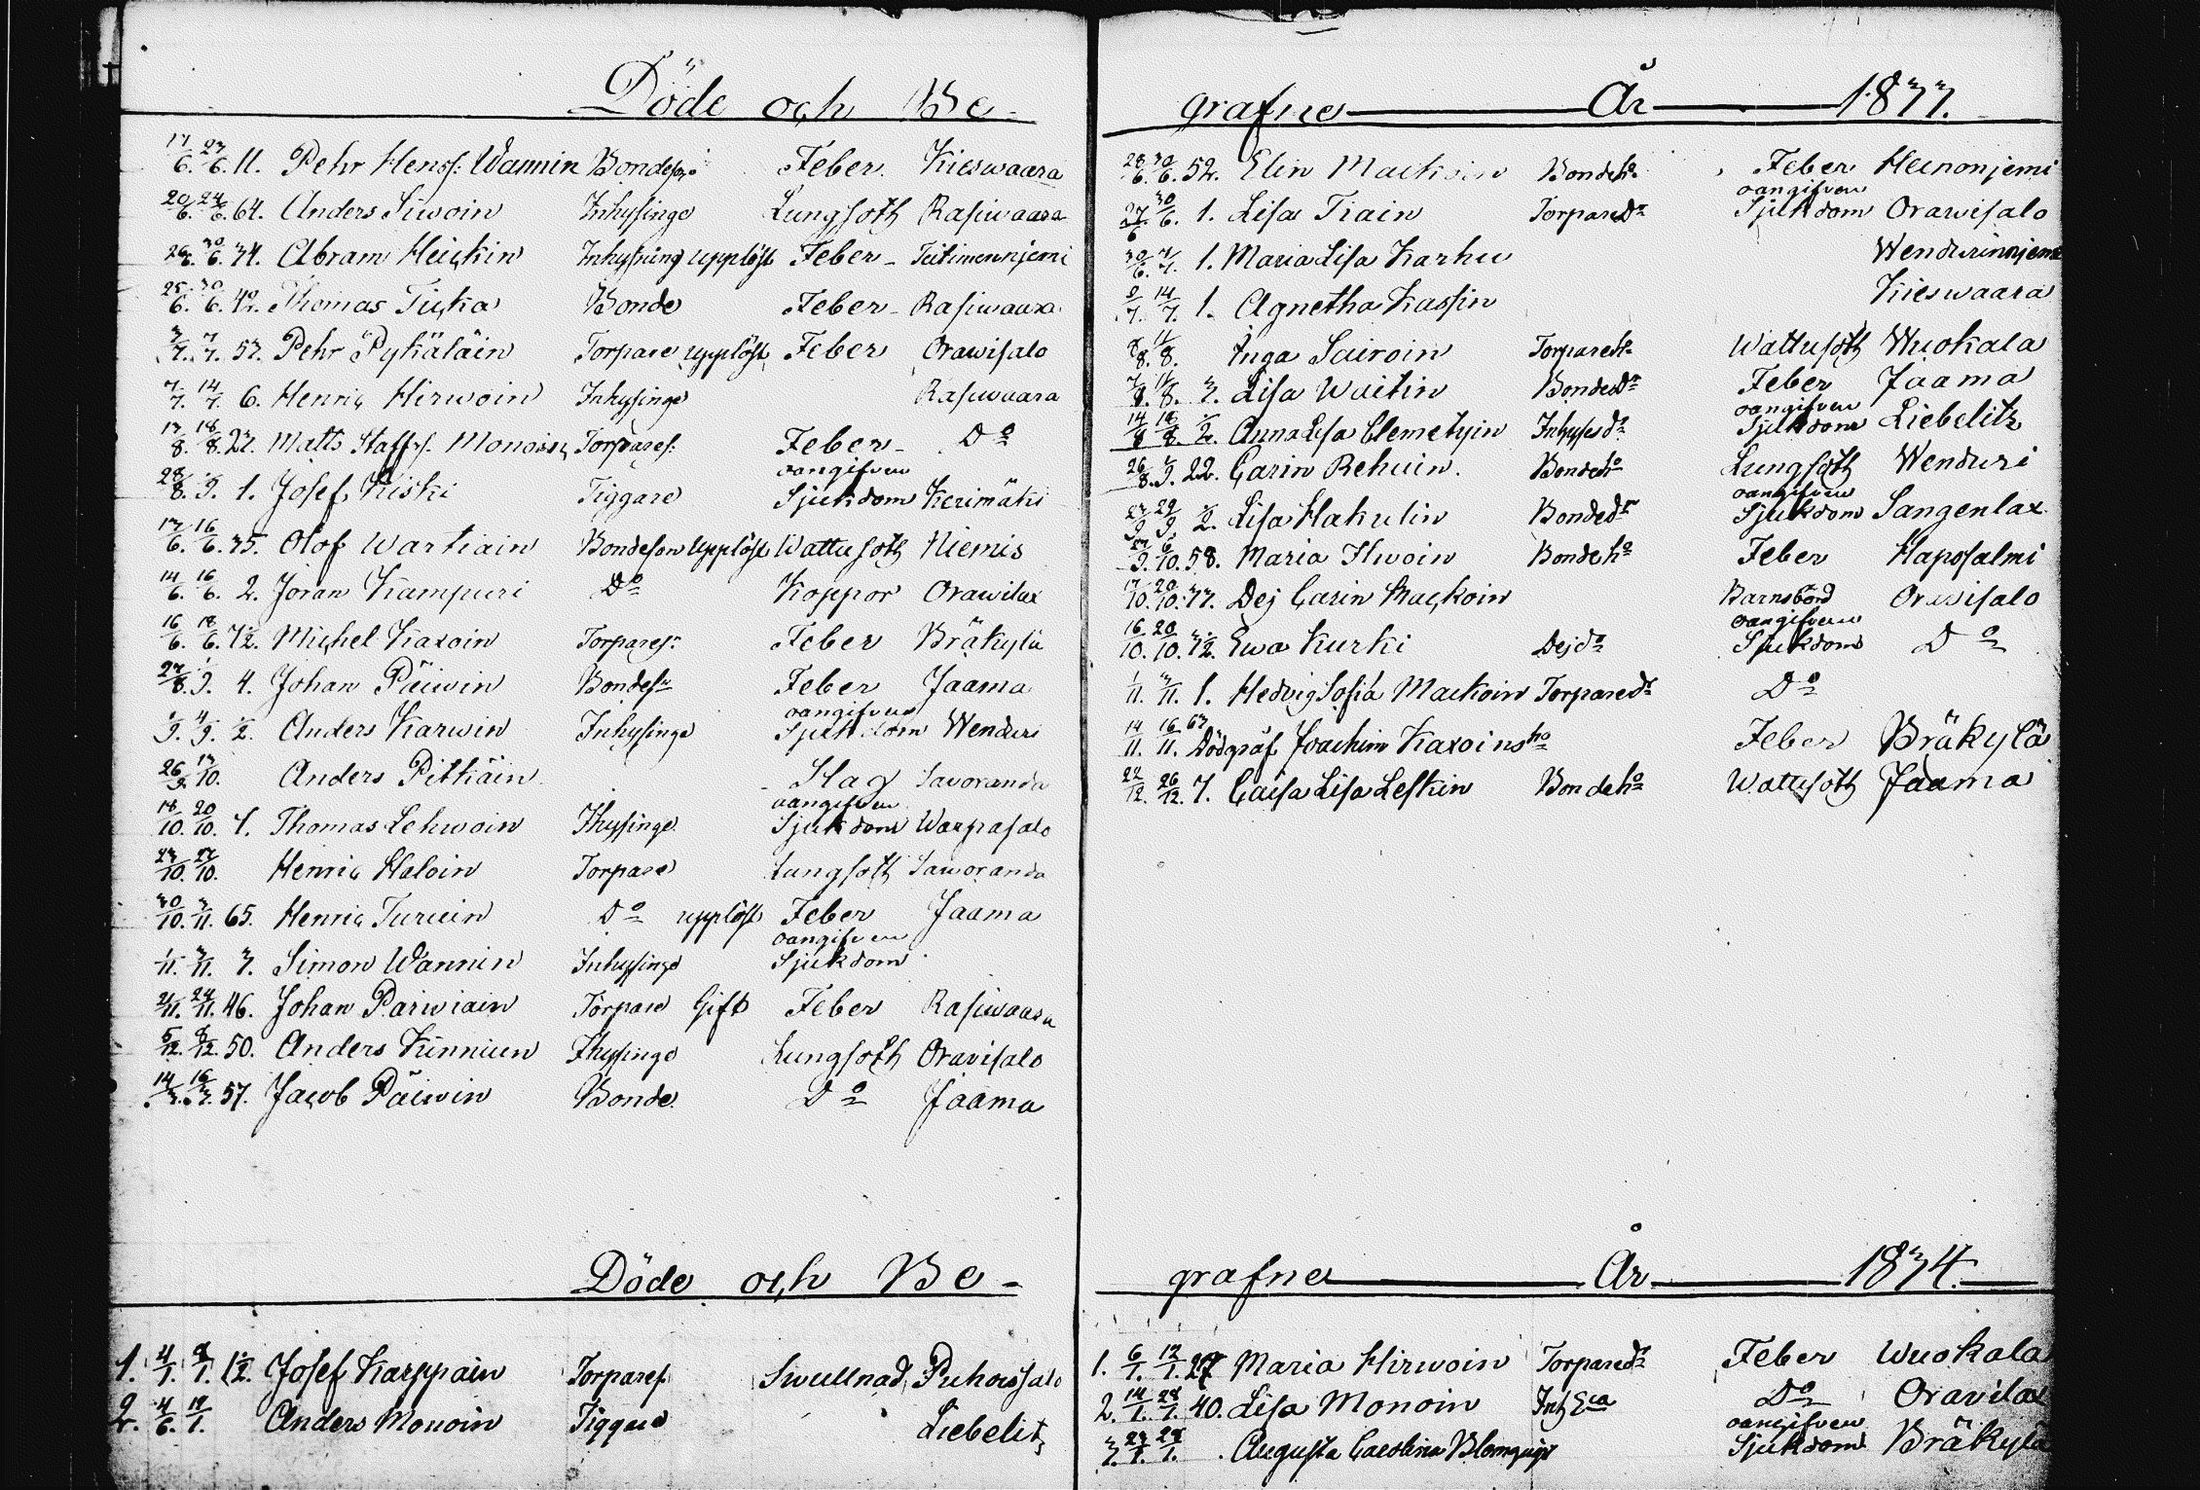 Döde och Be-
17/6. 23/6. 11. Pehr Henss: Wannin Bondeson Feber. Kieswaara
20/6. 24/6. 64. Anders Siwoin Inhysinge Lungsoth Rasiwaara
30/6. 34. Abram Heickin Inhysing upplöst Feber - Teitinennjemi
25/6. 30/6. 42. Thomas Tiçka Bonde Feber - Rasiwaara
3/7. 7/7. 57. Pehr Pykäläin Torpare upplöst Feber Orawisalo
7/7. 14/7. 6. Henric Hirwoin Inhysinge Rasiwaara
13/8. 18/8. 22. Matts Staffs. Monoin Torpares: Feber - Do
28/8. 1/9. 1. Josef Kiski Tiggare oangifven Sjukdom Kerimäki
13/6. 16/6. 35. Olof Wartiain Bondeson upplöst Wattusoth Niemis
14/6. 16/6. 2. Jöran Kampuri Do Koppor Orawilax
16/6. 18/6. 1/2. Michel Kaxoin Torpares: Feber Bräkylä
27/8. 1/9. 4. Johan Päiwin Bondesn Feber Jaama
1/9. 4/9. 1/2. Anders Karwin Inhysinge oangifven Sjukdom Wenduri
26/9. 13/10. Anders Pitkäin Slag Savoranda
18/10. 20/10. 7. Thomas Lehwoin Ihysinge oangifven Sjukdom Warpasalo
23/10. 27/10. Henric Haloin Torpare Lungsoth Saworanda
30/10. 3/11. 65. Henric Turuin Do upplöst Feber Jaama
1/11. 3/11. 3. Simon Wannin Inhysinge oangifven Sjukdom
21/11. 24/11. 46. Johan Parwiain Torpare Gift Feber Rasiwaara
5/12. 8/12. 50. Anders Kinniuin Ihysinge Lungsoth Oravisalo
14/3. 16/3. 57. Jacob Päiwin Bonde. Do Jaama
Döde och Be-
1. 4/1. 8/1. 1 1/2. Josef Karppain Torpares. Swullnad Puhoissalo
2. 4/6. 18/1. Anders Monoin Tiggare Liebelits
grafne År 1833.
28/6. 30/6. 52. Elin Mackoin Bondeho Feber Heinonjemi
27/6 30/6. 1. Lisa Tiain Torparedr oangifven Sjukdom Orawisalo
30/6. 7/7. 1. Maria Lisa Karhu Wendurinnjemi
9/7. 14/7. 1. Agnetha Kassin Kieswaara
8/8. 11/8. Inga Sairoin Torpareho Wattusoth Wuokala
7/8. 11/8. 3. Lisa Waitin Bondedr Feber Jaama
14/8 18/8. 1/2. Anna Lisa Clemetyin Inhysesdr oangifven Sjukdom Liebelitz
26/8. 1/9. 22. Carin Rehuin. Bondeho Lungsoth Wenduri
27/9 29/9 1/2. Lisa Hakulin Bondedr oangifven Sjukdom Sangenlax
6/10. 58. Maria Ihwoin Bondeho Feber Haposalmi
17/10. 20/10. 33. Dej Carin Mackoin Barnsbörd Orawisalo
16/10. 20/10. 1/2. Ewa Kurki Dejdr oangifven Sjukdom Do
1/11. 3/11. 1. Hedvig Sofia Mackoin Torparedr Do
14/11. 16/11. 63 Dödgräf Joachim Kaxoins ho Feber Bräkylä
22/12. 26/12. 7. Caisa Lisa Leskin Bondeho Wattusoth Jaama
grafne År 1834.
1. 6/1. 12/1. Maria Hirwoin Torparedr Feber Wuokala
2. 14/1. 28/1. 40. Lisa Monoin Inh Eca Do Oravilax
3. 23/1. 28/1. Augusta Carolina Blomquist oangifven Sjukdom Bräkylä